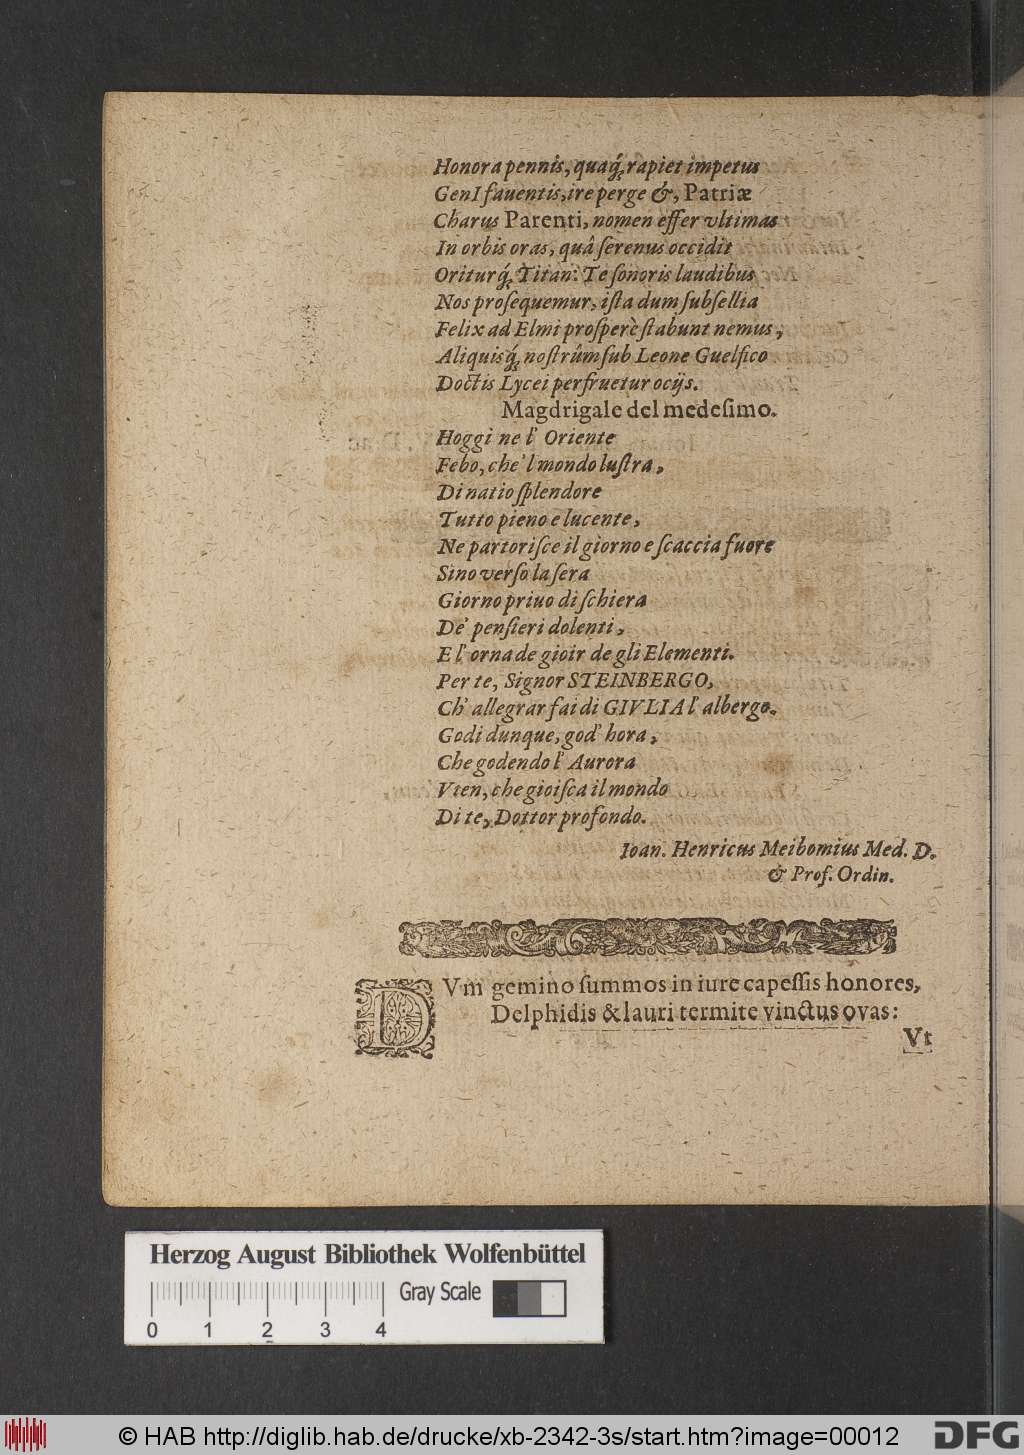 Honora pennis, quaq́; rapiet impetus
GenI fauentis, ire perge &, Patriæ
Charus Parenti, nomen effer vltimas
In orbis oras, quâ ſerenus occidit
Oriturq́; Titan: Te ſonoris laudibus
Nos proſequemur, iſta dum ſubſellia
Felix ad Elmi proſperè ſtabunt nemus,
Aliquisq́; noſtrûm ſub Leone Guelfico
Doctis Lycei perfruetur ocijs.
Magdrigale del medeſimo.
Hoggi ne l' Oriente
Febo, che'l mondo luſtra,
Di natio ſplendore
Tutto pieno e lucente,
Ne partoriſce il giorno e ſcaccia fuore
Sino verſo la ſera
Giorno priuo di ſchiera
De' penſieri dolenti,
E l' orna de gioir de gli Elementi.
Per te, Signor STEINBERGO,
Ch' allegrar fai di GIVLIA l' albergo.
Godi dunque, god' hora,
Che godendo l' Aurora
Vten, che gioiſca il mondo
Di te, Dottor profondo.
Ioan. Henricus Meibomius Med. D.
& Prof. Ordin.
DVm gemino ſummos in iure capeſſis honores,
Delphidis & lauri termite vinctus ovas:
Vt
Herzog August Bibliothek Wolfenbüttel
Gray Scale
0 1 2 3 4
© HAB http://diglib.hab.de/drucke/xb-2342-3s/start.htm?image=00012
DFG